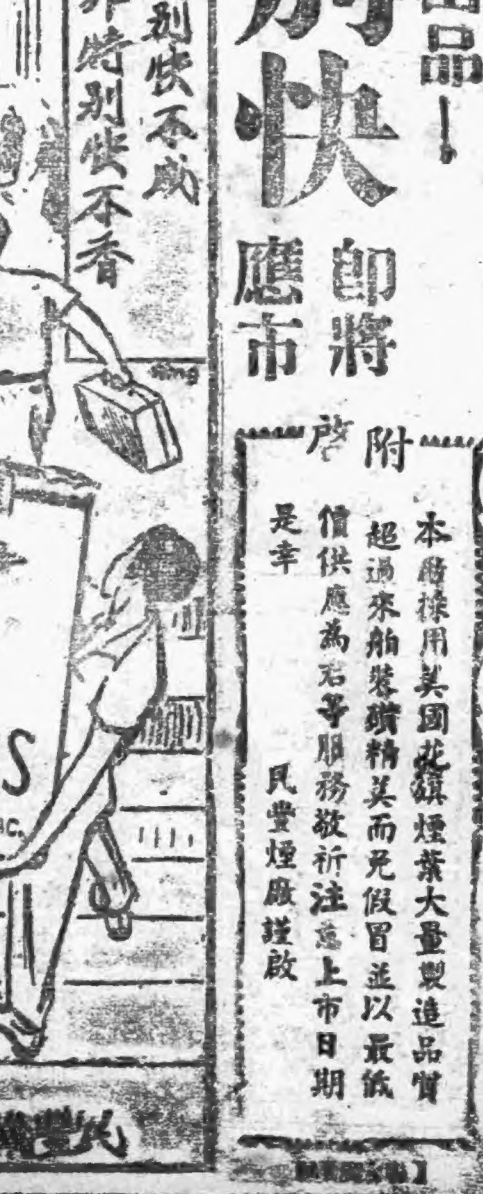 出品—
別快
即將
應市
附
啓
本廠採用美國花旗煙葉大量製造品質
超過來舶裝璜精美而免假冒並以最低
價供應為君等服務敬祈注意上市日期
是幸
民豐煙廠謹啟
別快不成
非特別快不香
S
民豐